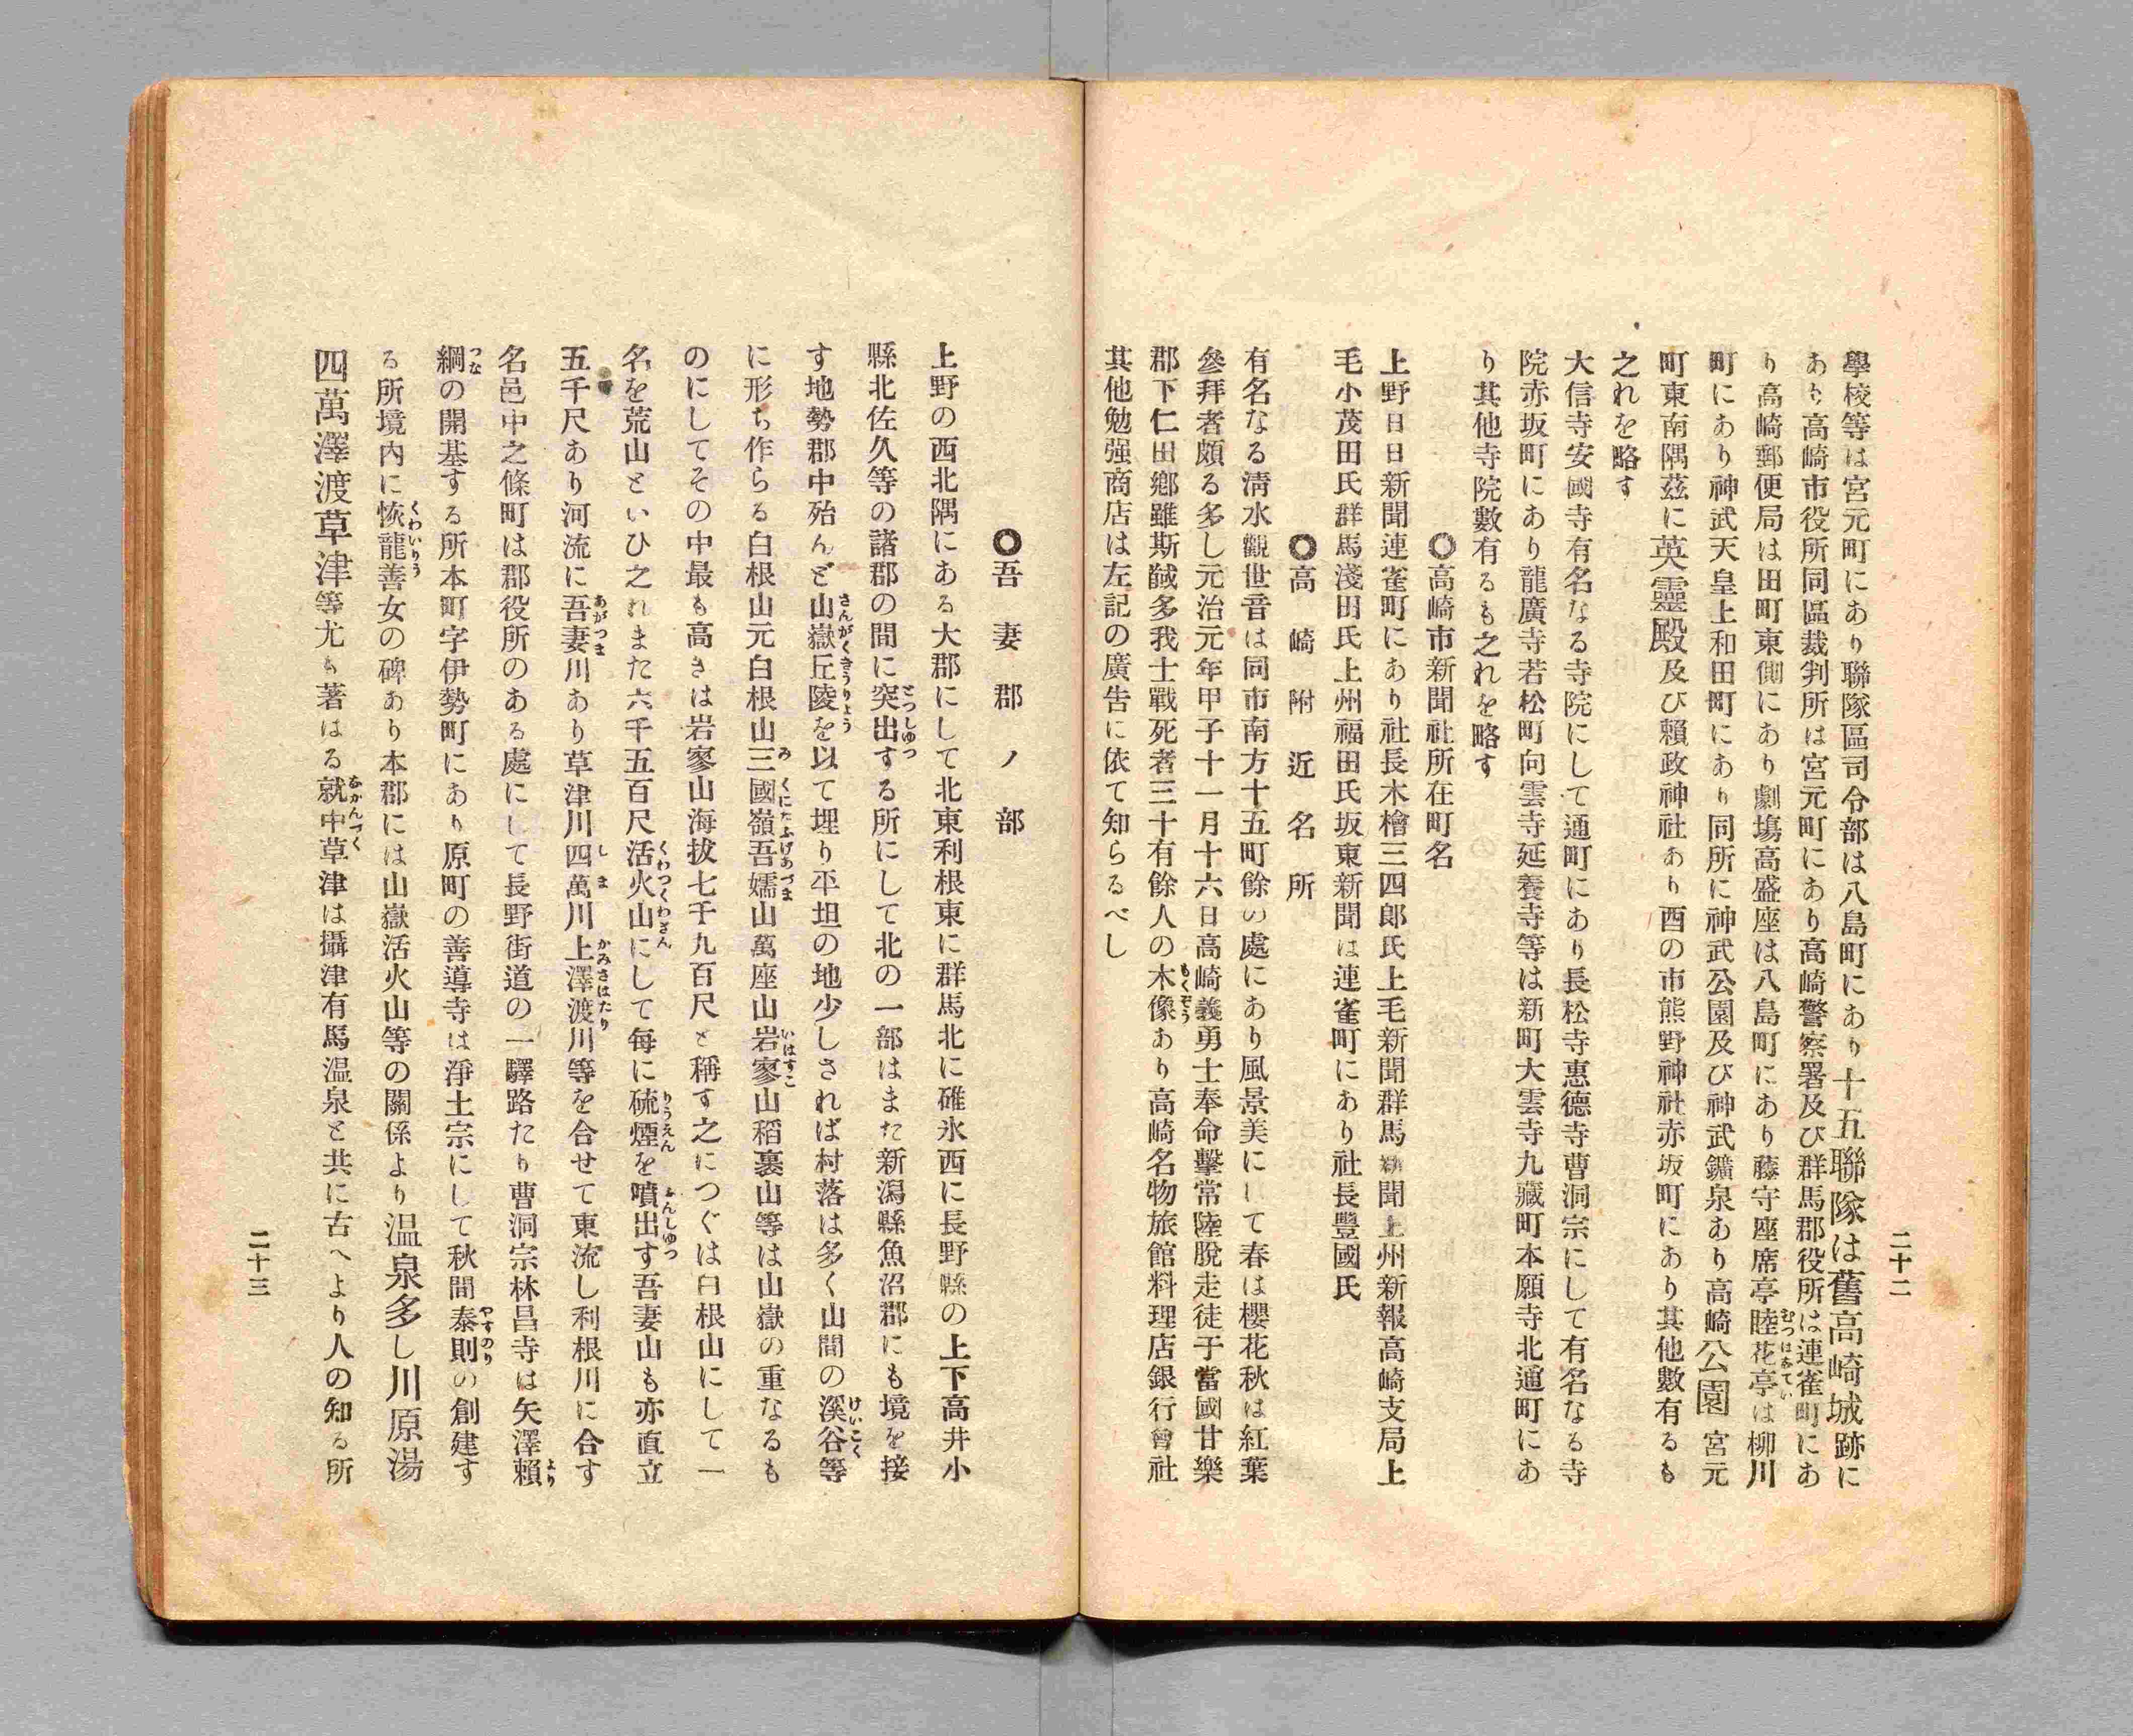 二十二
學校等は宮元町にあり聯隊區司令部は八島町にあり十五聯隊は舊高崎城跡に
あり高崎市役所同區裁判所は宮元町にあり高崎警察署及び群馬郡役所は連雀町にあ
り高崎郵便局は田町東側にあり劇塲高盛座は八島町にあり藤守座席亭睦花亭は柳川
町にあり神武天皇上和田町にあり同所に神武公園及び神武鑛泉あり高崎公園宮元
町東南隅茲に英靈殿及び賴政神社あり酉の市熊野神社赤坂町にあり其他數有るも
之れを略す
大信寺安國寺有名なる寺院にして通町にあり長松寺惠德寺曹洞宗にして有名なる寺
院赤坂町にあり龍廣寺若松町向雲寺延養寺等は新町大雲寺九藏町本願寺北通町にあ
り其他寺院數有るも之れを略す
◎高崎市新聞社所在町名
上野日日新聞連雀町にあり社長木檜三四郎氏上毛新聞群馬新聞上州新報高崎支局上
毛小茂田氏群馬淺田氏上州福田氏坂東新聞は連雀町にあり社長豐國氏
◎高崎附近名所
有名なる淸水觀世音は同市南方十五町餘の處にあり風景美にして春は櫻花秋は紅葉
參拜者頗る多し元治元年甲子十一月十六日高崎義勇士奉命擊常陸脫走徒于當國甘樂
郡下仁田鄕雖斯馘多我士戰死者三十有餘人の木像あり高崎名物旅館料理店銀行會社
其他勉强商店は左記の廣吿に依て知らるべし
◎吾妻郡ノ部
上野の西北隅にある大郡にして北東利根東に群馬北に碓氷西に長野縣の上下高井小
縣北佐久等の諸郡の間に突出する所にして北の一部はまた新潟縣魚沼郡にも境を接
す地勢郡中殆んど山嶽丘陵を以て埋り平坦の地少しされば村落は多く山間の溪谷等
に形ち作らる白根山元白根山三國嶺吾嬬山萬座山岩寥山稻裹山等は山嶽の重なるも
のにしてその中最も高きは岩寥山海拔七千九百尺と稱す之につぐは白根山にして一
名を荒山といひ之れまた六千五百尺活火山にして每に硫煙を噴出す吾妻山も亦直立
五千尺あり河流に吾妻川あり草津川四萬川上澤渡川等を合せて東流し利根川に合す
名邑中之條町は郡役所のある處にして長野街道の一驛路たり曹洞宗林昌寺は矢澤賴
綱の開基する所本町字伊勢町にあり原町の善導寺は淨土宗にして秋間泰則の創建す
る所境内に恢龍善女の碑あり本郡には山嶽活火山等の關係より温泉多し川原湯
四萬澤渡草津等尤も著はる就中草津は攝津有馬温泉と共に古へより人の知る所
二十三